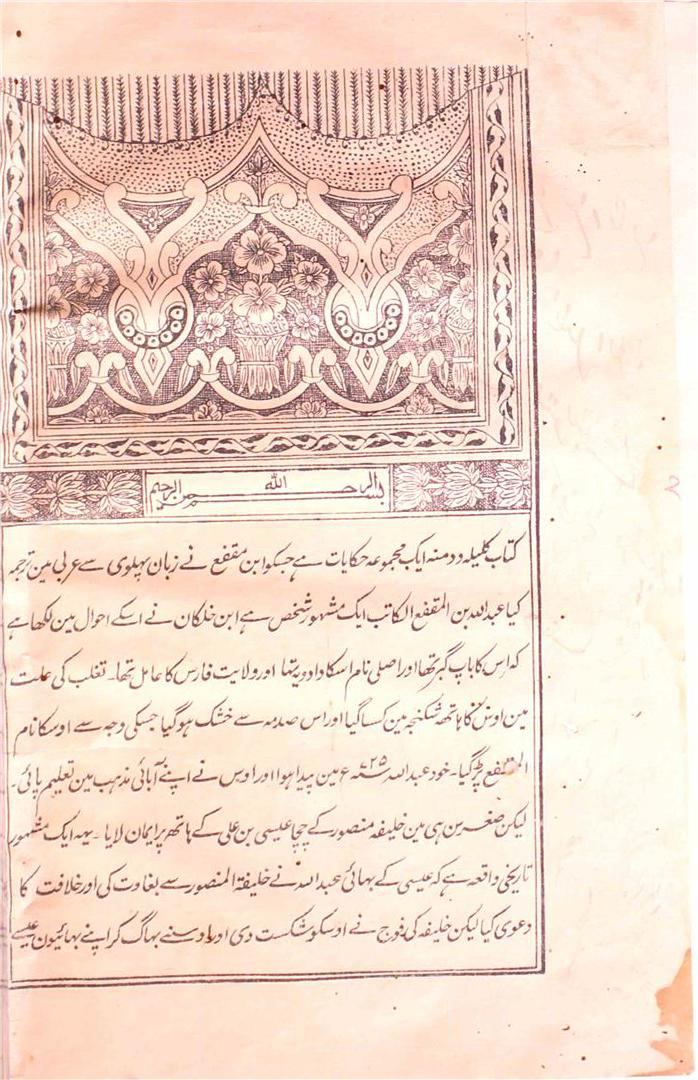 بسم الله الرحمن الرحيم
کتاب کلیلہ و دمنہ ایک مجموعہ حکایات ہے جسکو ابن مقفع نے زبان پہلوی سے عربی مین ترجمہ
کیا عبد اللہ بن المقفع الکاتب ایک مشہور شخص ہے ابن خلکان نے اسکے احوال مین لکھا ہے
کہ اِس کا باپ گبر تھا اور اصلی نام اسکا دادویہ تہا اور ولایت فارس کا عامل تھا۔ تغلب کی علت
مین اوس کا ہاتھ شکنجہ مین کسا گیا اور اس صدمہ سے خشک ہو گیا جسکی وجہ سے اوسکا نام
المقفع پڑ گیا۔ خود عبد اللہ ۷۲۵ سنہ ع مین پیدا ہوا اور اوس نے اپنے آبائی مذہب مین تعلیم پائی۔
لیکن صغر سن ہی مین خلیفہ منصور کے چچا عیسی بن علی کے ہاتھ پر ایمان لایا ۔ یہہ ایک مشہور
تاریخی واقعہ ہے کہ عیسی کے بہائی عبد اللہ نے خلیفۃ المنصور سے بغاوت کی اور خلافت کا
دعوی کیا لیکن خلیفہ کی فوج نے اوسکو شکست دی اور اوسنے بہاگ کر اپنے بہائیون عیسے